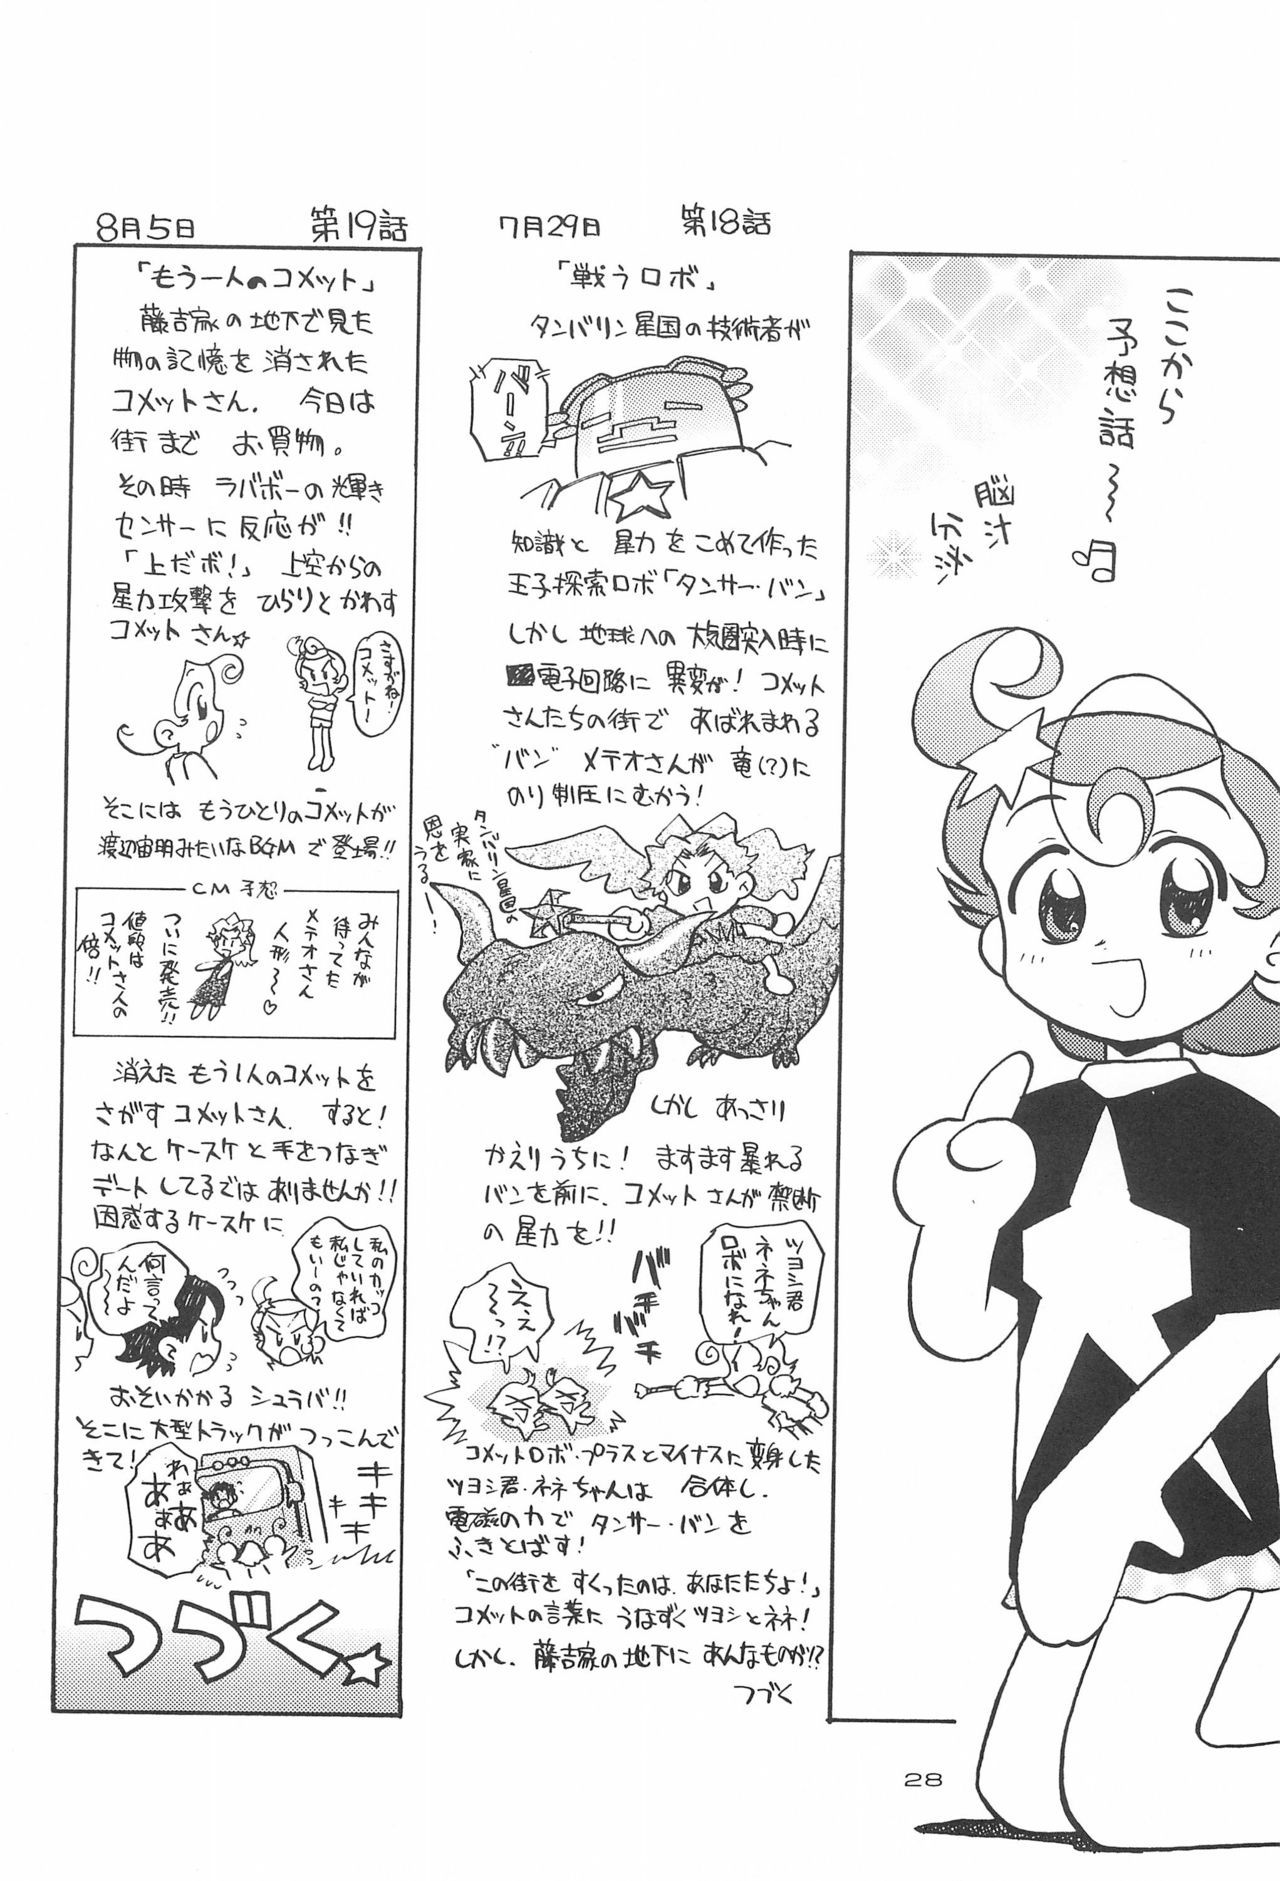 ここから
予想話〜〜♪
脳汁
分泌
7月29日　第18話
「戦うロボ」
タンバリン星国の技術者が
バーン!!
知識と星力をこめて作った
王子探索ロボ「タンサー・バン」
しかし地球への大気圏突入時に
電子回路に異変が！コメット
さんたちの街であばれまわる
"バン"メテオさんが竜(?)に
のり制圧にむかう！
タンバリン星国の
実家に
恩を
うる〜！
しかしあっさり
かえりうちに！ますます暴れる
バンを前に、コメットさんが禁断
の星力を!!
ツヨシ君
ネネちゃん
ロボになれ！
バチバチバチ
ええ
〜っ!?
コメットロボ・プラスとマイナスに変身した
ツヨシ君・ネネちゃんは合体し、
電磁の力でタンサー・バンを
ふきとばす！
「この街をすくったのはあなたたちよ！」
コメットの言葉にうなずくツヨシとネネ！
しかし、藤吉家の地下にあんなものが!?
つづく
8月5日　第19話
「もう一人のコメット」
藤吉家の地下で見た
物の記憶を消された
コメットさん。今日は
街までお買物。
その時ラバボーの輝き
センサーに反応が!!
「上だボ！」上空からの
星力攻撃をひらりとかわす
コメットさん☆
さすがね！
コメットー
そこにはもうひとりのコメットが
渡辺宙明みたいなBGMで登場!!
CM予想
みんなが
待ってた
メテオさん
人形〜♡
ついに発売!!
値段は
コメットさんの
倍!!
消えたもう1人のコメットを
さがすコメットさん。すると！
なんとケースケと手をつなぎ
デートしてるではありませんか!!
困惑するケースケに
私のカッコ
していれば
私じゃなくて
もいーの？
何言って
んだよ
〜〜
おそいかかるシュラバ!!
そこに大型トラックがつっこんで
きて！
キキキ
わぁ
あぁ
あぁ
あ
つづく☆
28